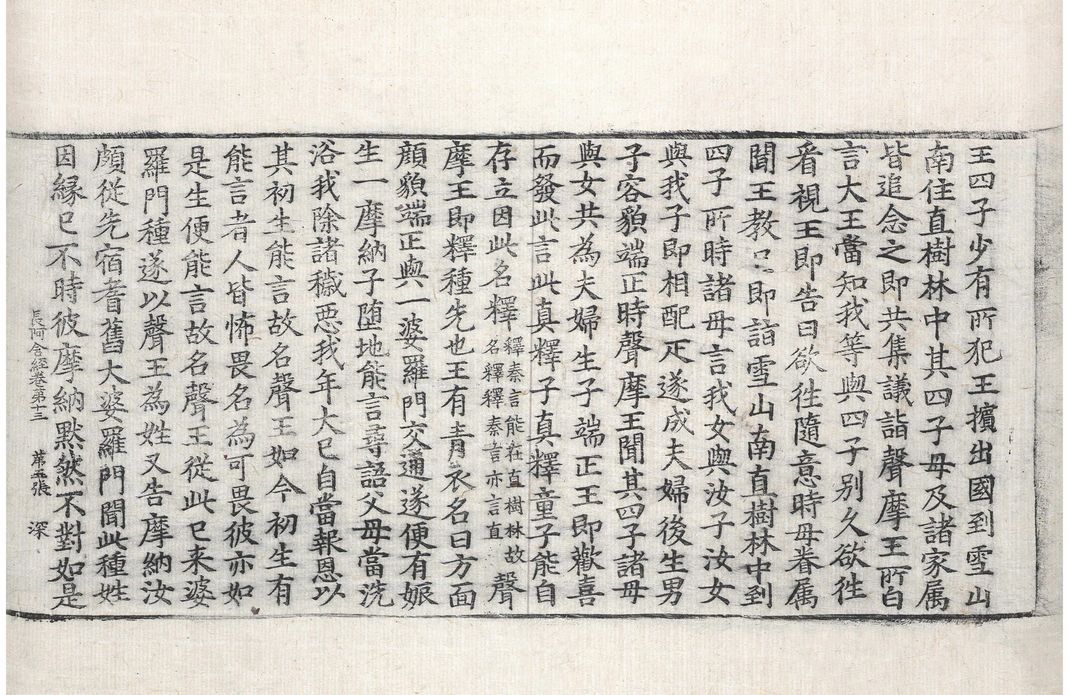 王四子少有所犯王擯出國到雪山
南住直樹林中其四子母及諸家属
皆追念之即共集議詣聲摩王所白
言大王當知我等與四子別久欲徃
看視王即告曰欲徃隨意時母眷属
聞王教已即詣雪山南直樹林中到
四子所時諸母言我女與汝子汝女
與我子即相配疋遂成夫婦後生男
子容貌端正時聲摩王聞其四子諸母
與女共為夫婦生子端正王即歡喜
而發此言此真釋子真釋童子能自
存立因此名釋釋秦言能在直樹林故名釋釋秦言亦言直聲
摩王即釋種先也王有青衣名曰方面
顔貌端正與一婆羅門交通遂便有娠
生一摩納子堕地能言尋語父母當洗
浴我除諸穢惡我年大已自當報恩以
其初生能言故名聲王如今初生有
能言者人皆怖畏名為可畏彼亦如
是生便能言故名聲王從此已来婆
羅門種遂以聲王為姓又告摩納汝
頗從先宿耆舊大婆羅門聞此種姓
因縁已不時彼摩納默然不對如是
長阿含經卷第十三 第五張 深